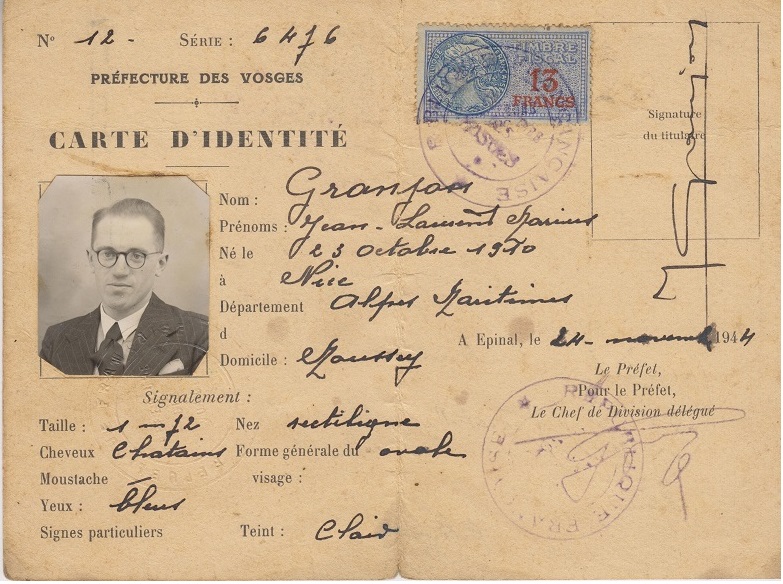 N° 12 - SÉRIE : 6476
PRÉFECTURE DES VOSGES
CARTE D'IDENTITÉ
TIMBRE
FISCAL
13
FRANCS
Signature
du titulaire
Nom : Granjon
Prénoms : Jean-Laurent Marius
Né le 23 Octobre 1910
à Nice
Département Alpes Maritimes
d
Domicile : Moussey
A Epinal, le 24 - novemb 1944
Le Préfet,
Pour le Préfet,
Le Chef de Division délégué
RÉPUBLIQUE FRANÇAISE
Signalement :
Taille : 1 m 72 Nez rectiligne
Cheveux Chatains Forme générale du ovale
Moustache visage :
Yeux : bleus
Signes particuliers Teint : Clair